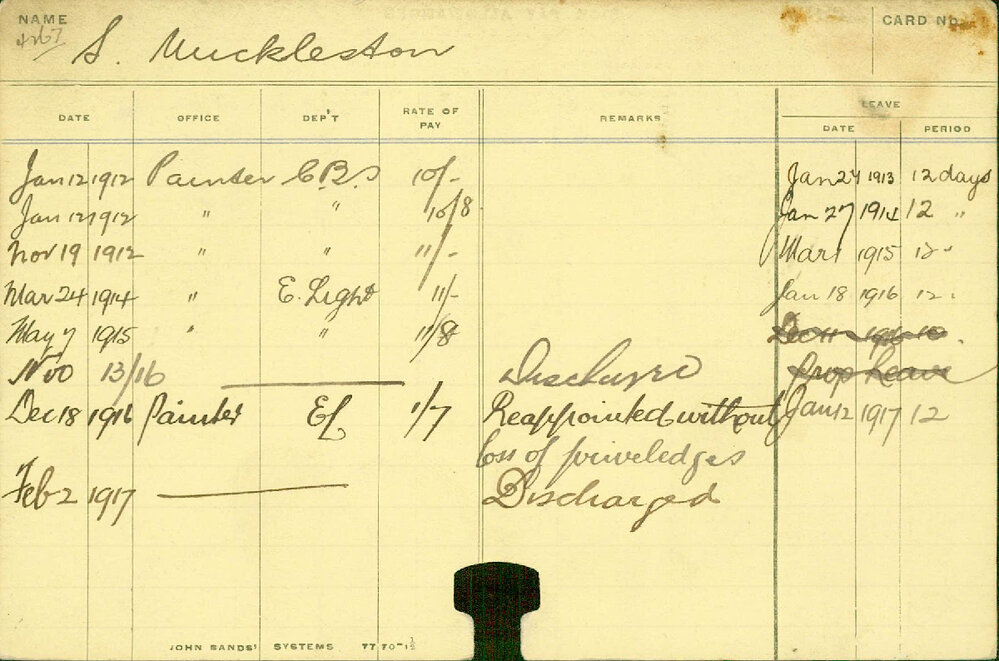 NAME CARD No.
4267 S. Muckleston
LEAVE
DATE OFFICE DEP'T RATE OF PAY REMARKS DATE PERIOD
Jan 12 1912 Painter C.B.S 10/- Jan 27 1913 12 days
Jan 12 1912 " " 10/8 Jan 27 1914 12 "
Nov 19 1912 " " 11/- Mar 1 1915 12 "
Mar 24 1914 " E. Light 11/- Jan 18 1916 12 "
May 7 1915 " " 11/8 Dec 11 1916 10
Nov 13/16 Discharged Prop Leave
Dec 18 1916 Painter EL 1/7 Reappointed without Jan 12 1917 12
loss of priveledges
Feb 2 1917 Discharged
JOHN SANDS' SYSTEMS 7770-1½